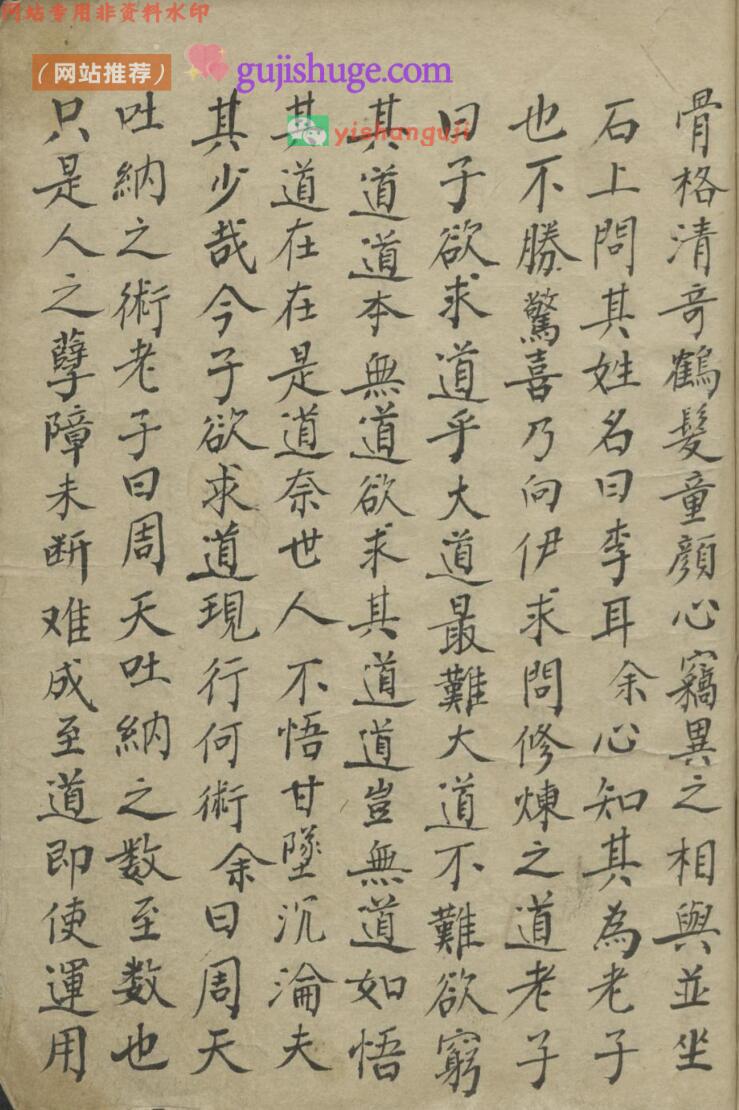 网站专用非资料水印
（网站推荐） gujishuge.com
yishanguji
骨格清奇鶴髮童顏心竊異之相與並坐
石上問其姓名曰李耳余心知其為老子
也不勝驚喜乃向伊求問修煉之道老子
曰子欲求道乎大道最難大道不難欲窮
其道道本無道欲求其道道豈無道如悟
其道在在是道奈世人不悟甘墜沉淪夫
其少哉今子欲求道現行何術余曰周天
吐納之術老子曰周天吐納之数至数也
只是人之孽障未断难成至道即使運用